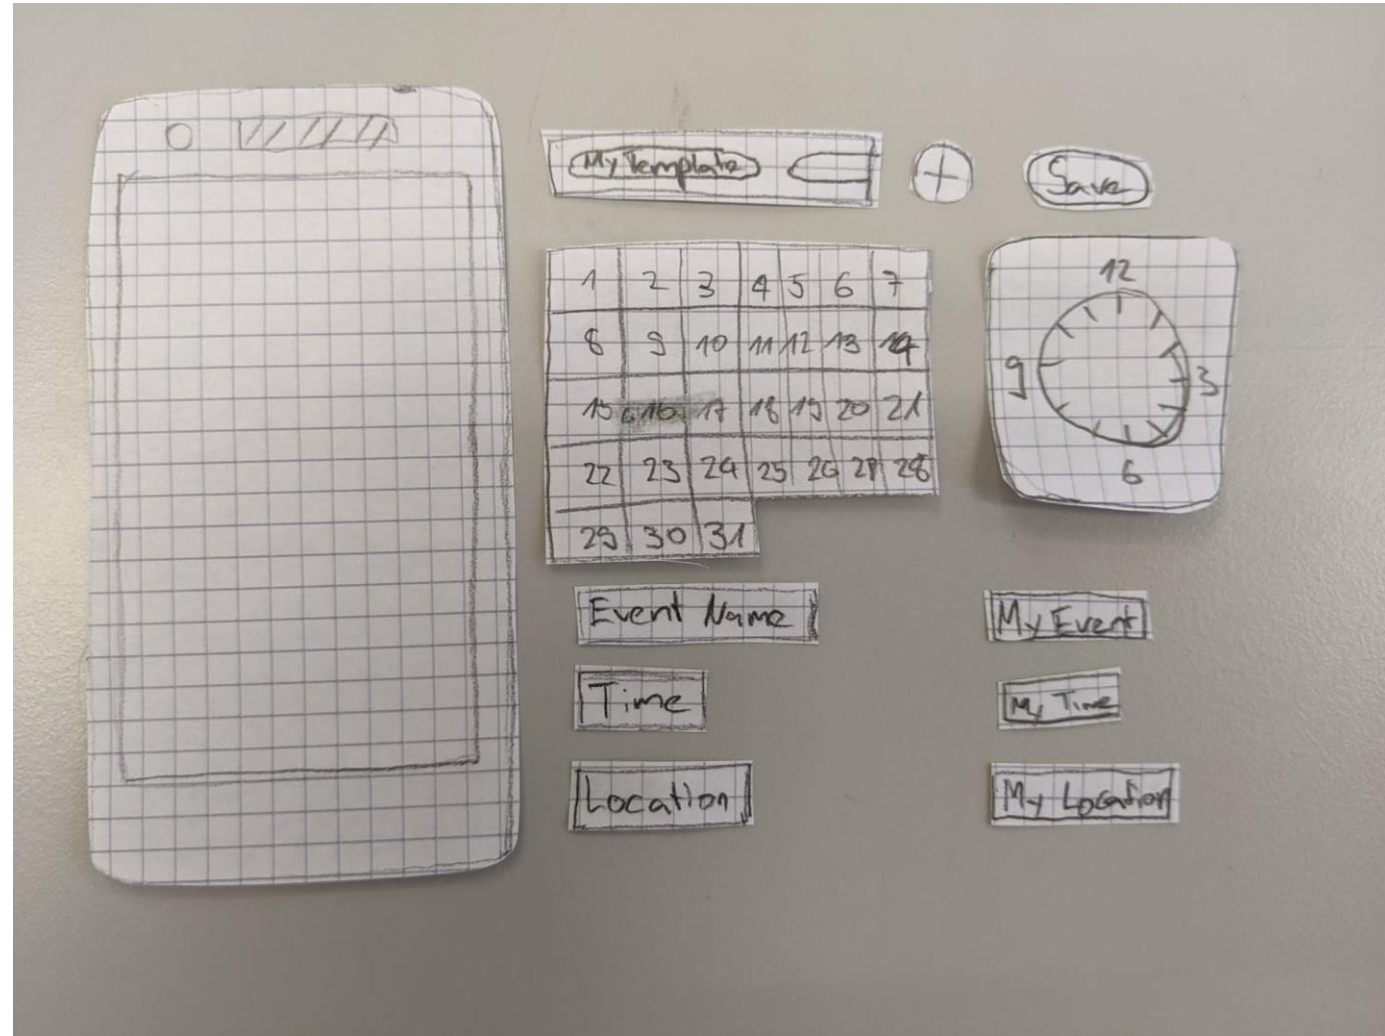 My Template
Save
1 2 3 4 5 6 7
8 9 10 11 12 13 14
15 16 17 18 19 20 21
22 23 24 25 26 27 28
29 30 31
12
9 3
6
Event Name
My Event
Time
My Time
Location
My Location